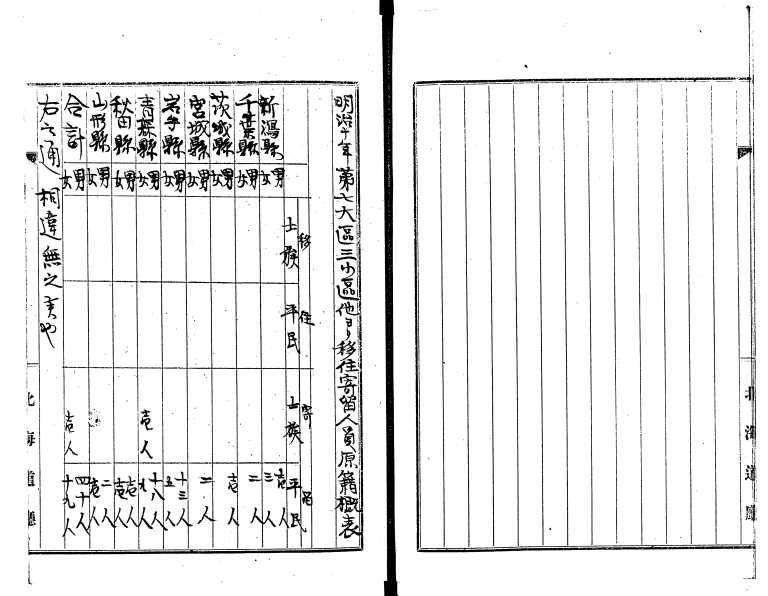 北海道廳
明治十年第七大區三小區他ヨリ移住寄留人員原籍概表
移住 寄留
士族 平民 士族 平民
新潟縣 男 壱人
女 三人
千葉縣 男 二人
女
茨城縣 男 壱人
女
宮城縣 男 二人
女
岩手縣 男 十三人
女 五人
青森縣 男 壱人 十八人
女 九人
秋田縣 男 壱人
女 壱人
山形縣 男 二人
女 壱人
合計 男 四十人
女 壱人 十九人
右之通相違無之候也
北海道廳